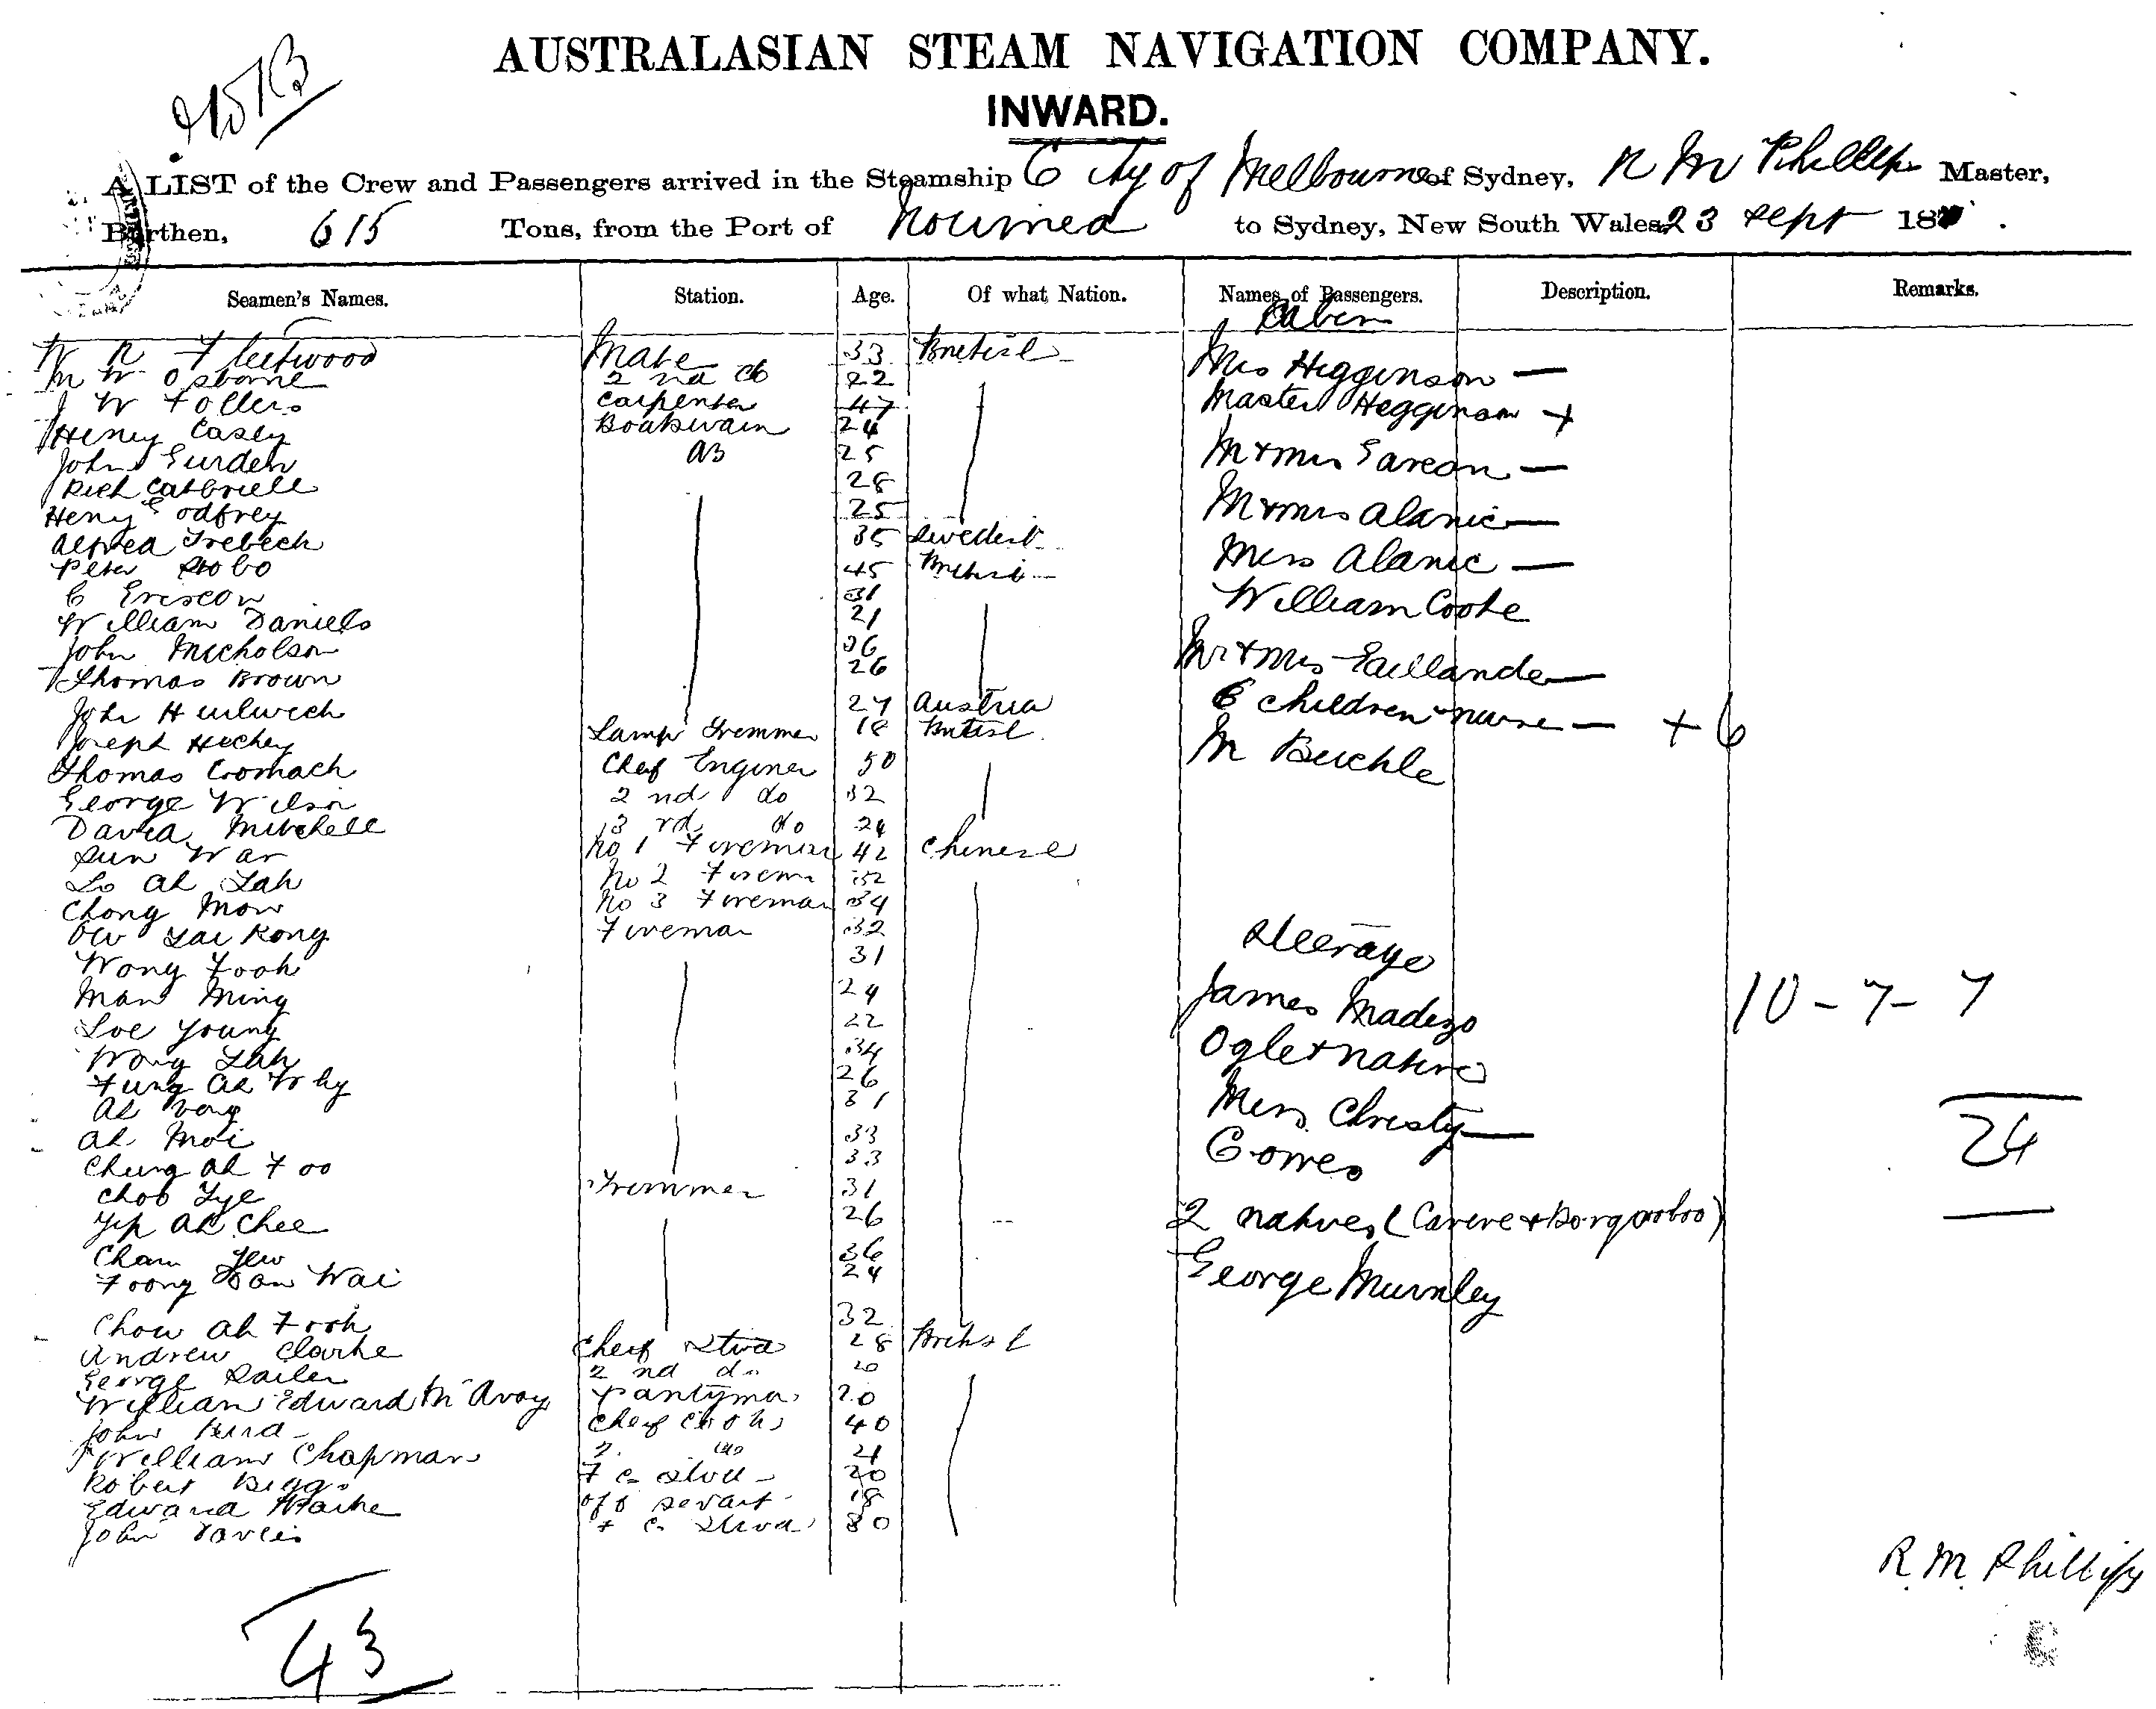 AUSTRALASIAN STEAM NAVIGATION COMPANY.
INWARD.
A LIST of the Crew and Passengers arrived in the Steamship City of Melbourne of Sydney, R M Phillips Master,
Burthen, 615 Tons, from the Port of Noumea to Sydney, New South Wales 23 Sept 18
Seamen's Names. Station. Age. Of what Nation. Names of Passengers. Description. Remarks.
Cabin
W R Fleetwood Mate 33 British Mrs Higginson —
M W Osborne 2nd do 22
J W Follers Carpenter 47 Master Higginson +
Henry Casey Boatswain 24
John Gurden AB 25 Mr & Mrs —
Rich 28
Henry Godfrey 25 Mr & Mrs Alanic —
Alfred Trebech 35 Swedish
Peter Stobo 45 British Miss Alanic —
C 31
William Daniels 21 William Cooke
John Nicholson 36
Thomas Brown 26 Mr & Mrs —
John 27 Austria 6 children & nurse — + 6
Joseph Hechey Lamp Trimmer 18 British
Thomas Cromach Chef Enginer 50 M Buchle
George Wilson 2nd do 32
David Mitchell 3rd do 24
Sun War No 1 Fireman 42 Chinese
Lo Ah Lah No 2 Firema 32
Chong Mow No 3 Fireman 34
Lai Kong Fireman 32 Steerage
Wong Fook 31
Man Ming 24 James 10 - 7 - 7
Loe Young 22
Wong Lah 34 Ogle & native
Fung Ah Why 26
Ah 31 Miss Christy — 24
Ah Moi 33
Chung Ah Foo 33 Gomes
Choo Tye Trimmer 31
Yip Ah Chee 26 2 natives
Cham Yew 36
Foong Wai 24 George Murnley
Chow Ah Fook 32
Andrew Clarke Chef Stwd 28 British
George 2nd do 20
William Edward McAvoy Pantyma 20
John Chef Cook 40
William Chapman 2 do 21
Robert Biggs F C 20
Edward off Servant 18
John F C Stwd 30
43
R. M. Phillips